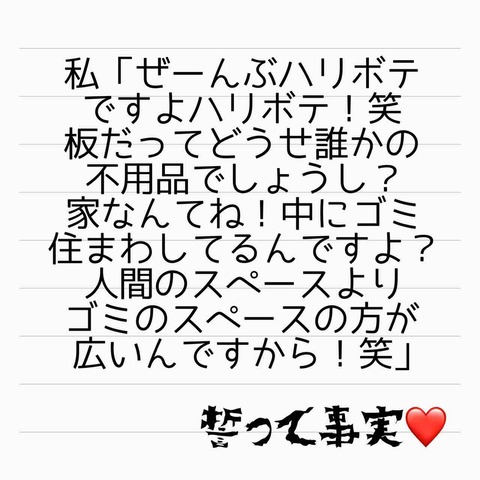 私「ぜーんぶハリボテ
ですよハリボテ！笑
板だってどうせ誰かの
不用品でしょうし？
家なんてね！中にゴミ
住まわしてるんですよ？
人間のスペースより
ゴミのスペースの方が
広いんですから！笑」
誓って事実❤️